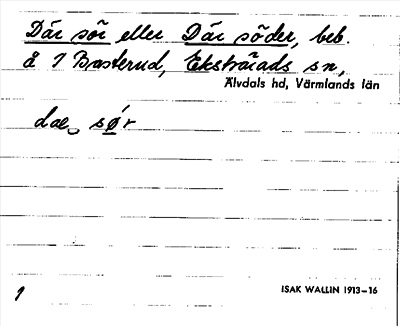 Där sör eller Där söder, beb.
å 1 Basterud, Ekshärads sn,
Älvdals hd, Värmlands län
dae, sø̀r
1
ISAK WALLIN 1913–16